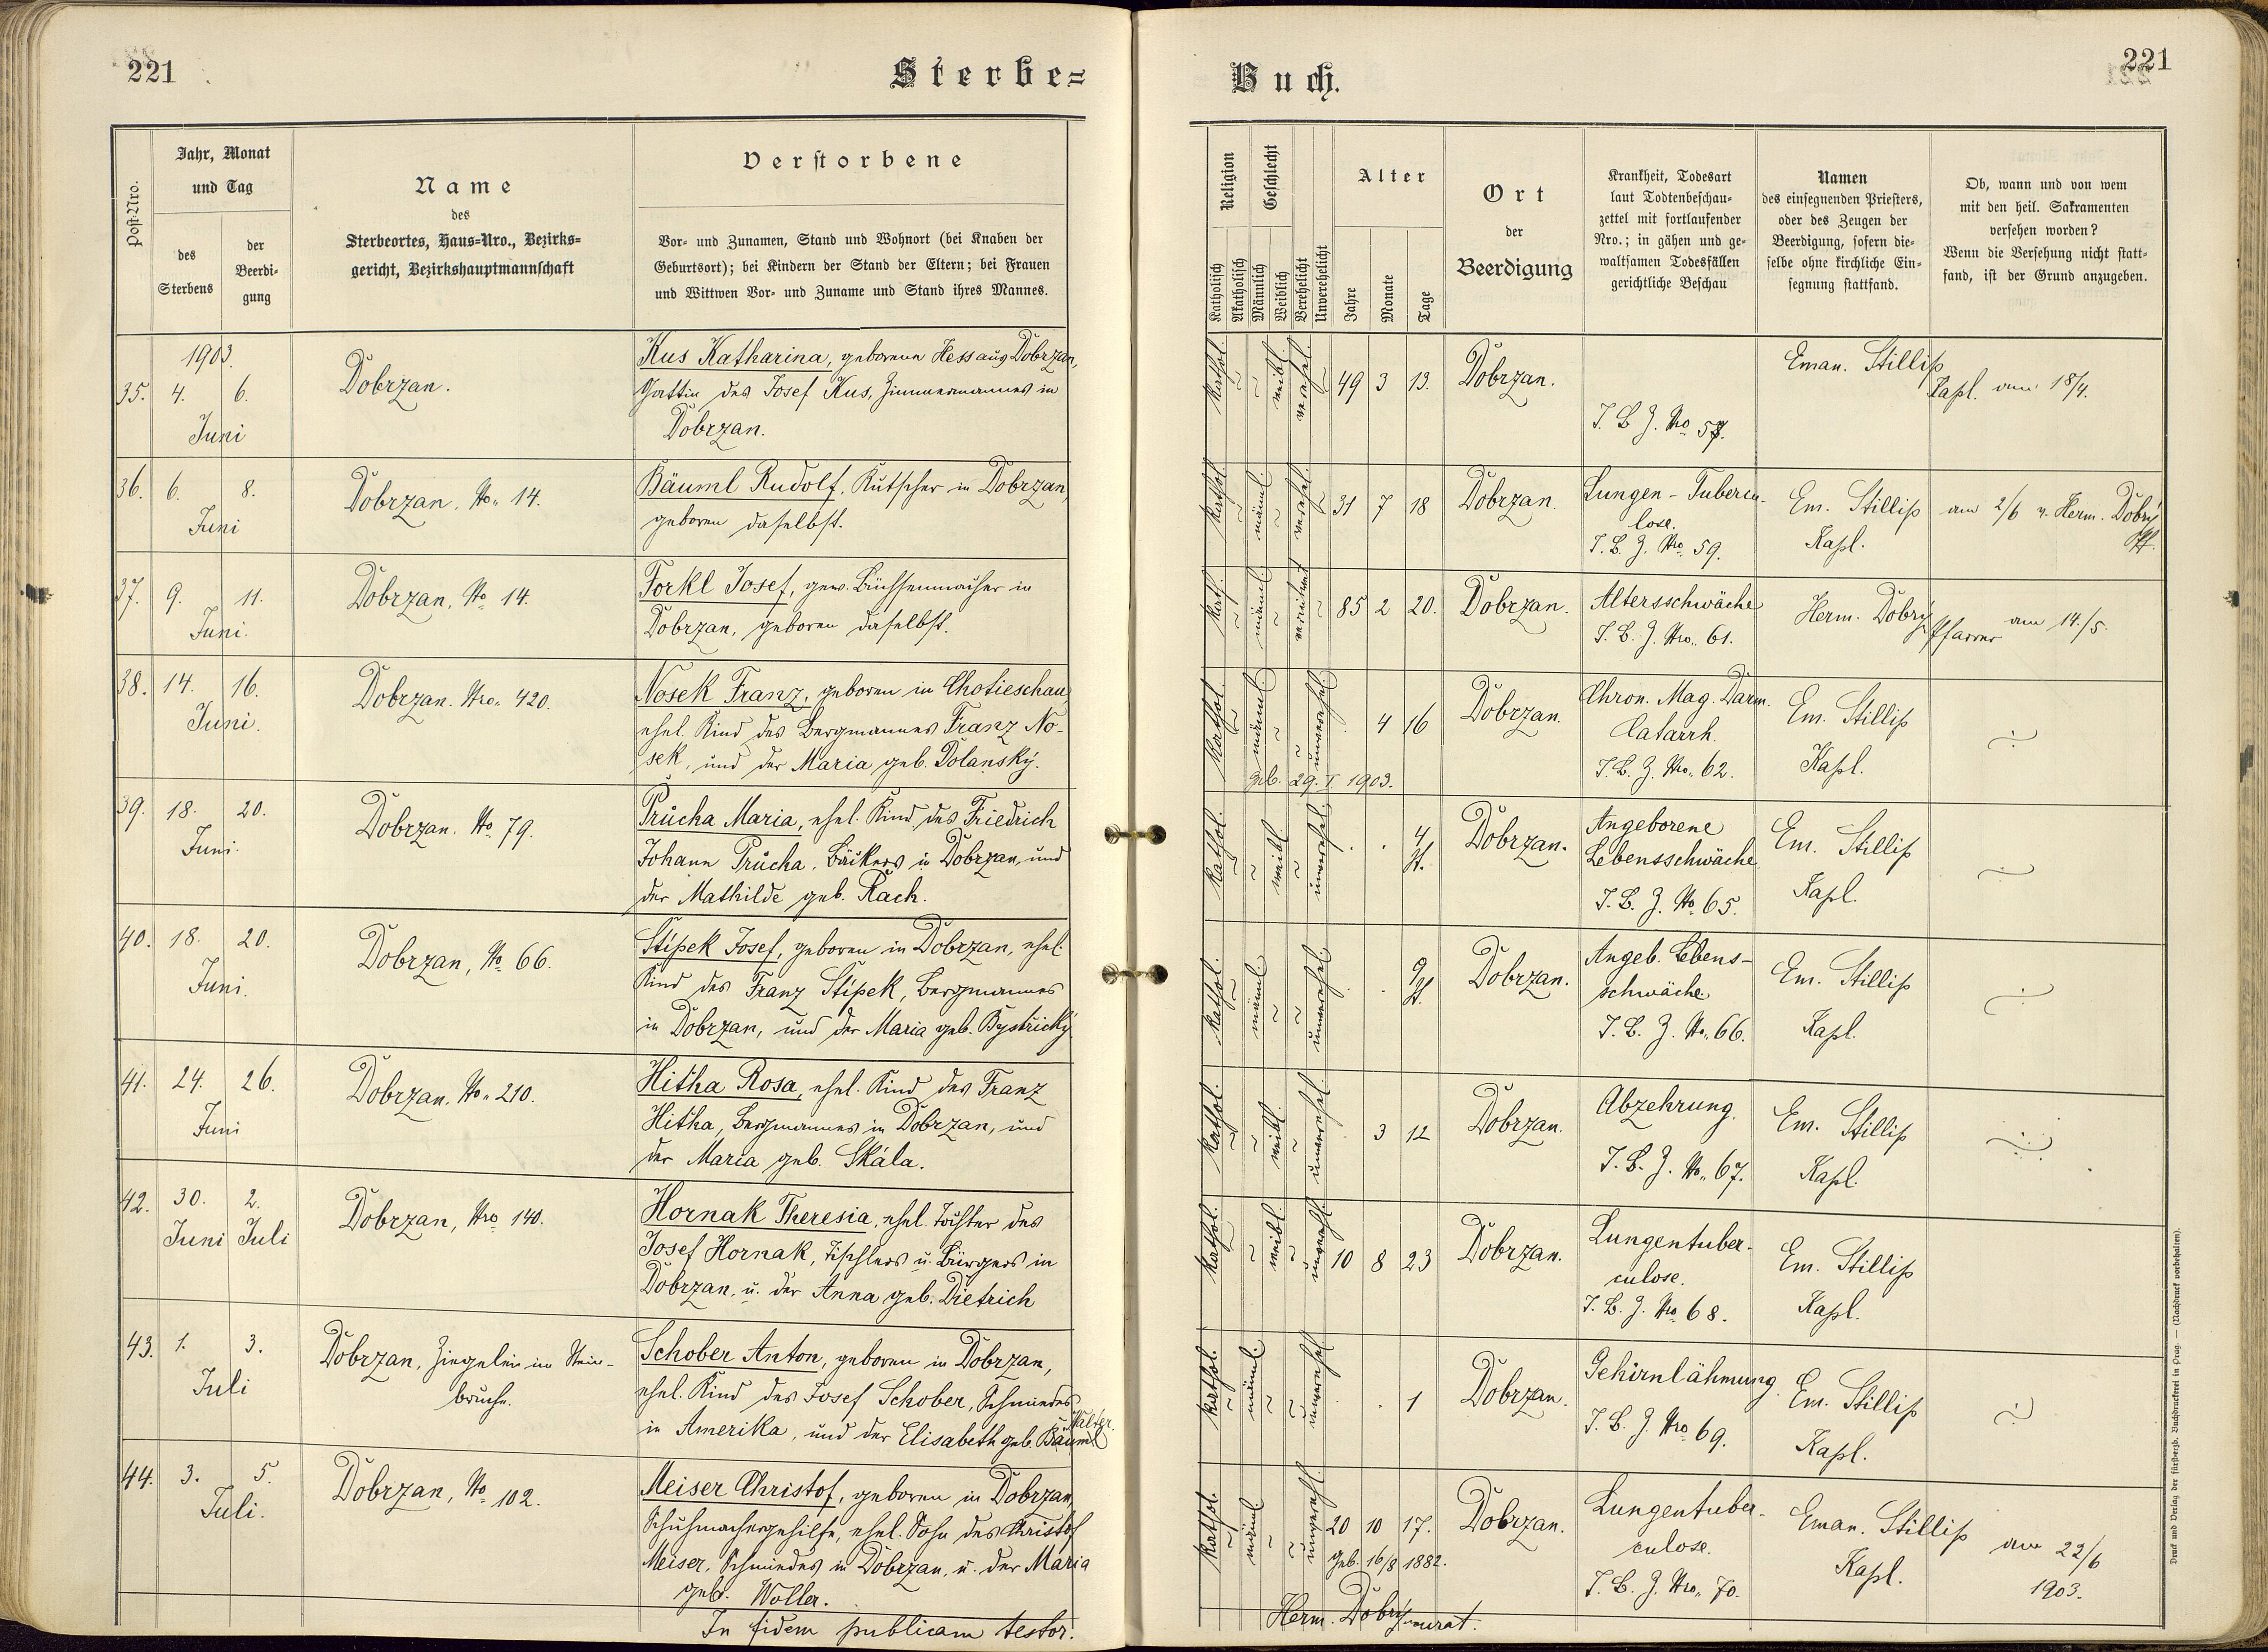 221
Sterbe=
Post-Nro.
Jahr, Monat
und Tag
des
Sterbens
der
Beerdi-
gung
Name
des
Sterbeortes, Haus=Nro., Bezirks=
gericht, Bezirkshauptmannschaft
Verstorbene
Vor- und Zunamen, Stand und Wohnort (bei Knaben der
Geburtsort); bei Kindern der Stand der Eltern; bei Frauen
und Wittwen Vor- und Zuname und Stand ihres Mannes.
1903.
35. 4. 6.
Juni
Dobrzan.
Kus Katharina, geborene Hess aus Dobrzan,
Gattin des Josef Kus, Zimmermannes in
Dobrzan.
36. 6. 8.
Juni
Dobrzan, No. 14.
Bäuml Rudolf, Kutscher in Dobrzan,
geboren daselbst.
37. 9. 11.
Juni.
Dobrzan, No 14.
Forkl Josef, gew. Büchsenmacher in
Dobrzan, geboren daselbst.
38. 14. 16.
Juni.
Dobrzan. Nro. 420.
Nosek Franz, geboren in Chotieschau,
ehel. Kind des Bergmannes Franz No-
sek, und der Maria geb. Dolanský.
39. 18. 20.
Juni.
Dobrzan. No 79.
Průcha Maria, ehel. Kind des Friedrich
Johann Průcha, Bäckers in Dobrzan, und
der Mathilde geb. Rach.
40. 18. 20.
Juni.
Dobrzan, No 66.
Stípek Josef, geboren in Dobrzan, ehel.
Kind des Franz Stípek, Bergmannes
in Dobrzan, und der Maria geb. Bystrický.
41. 24. 26.
Juni
Dobrzan. No. 210.
Hitha Rosa, ehel. Kind des Franz
Hitha, Bergmannes in Dobrzan, und
der Maria geb. Skála.
42. 30. 2.
Juni Juli
Dobrzan, Nro 140.
Hornak Theresia, ehel. Tochter des
Josef Hornak, Tischlers u. Bürgers in
Dobrzan, u. der Anna geb. Dietrich
43. 1. 3.
Juli
Dobrzan, Ziegelei im Stein-
bruche.
Schober Anton, geboren in Dobrzan,
ehel. Kind des Josef Schober, Schmiedes
in Amerika, und der Elisabeth geb. Bäuml
44. 3. 5.
Juli.
Dobrzan, No 102.
Meiser Christof, geboren in Dobrzan,
Schuhmachergehilfe, ehel. Sohn des Christof
Meiser, Schmiedes in Dobrzan, u. der Maria
geb. Woller.
In fidem publicam testor.
Buch.
221
Religion
Katholisch
Akatholisch
Geschlecht
Männlich
Weiblich
Verehelicht
Unverehelicht
Alter
Jahre
Monate
Tage
Ort
der
Beerdigung
Krankheit, Todesart
laut Todtenbeschau-
zettel mit fortlaufender
Nro.; in gähen und ge-
waltsamen Todesfällen
gerichtliche Beschau
Namen
des einsegnenden Priesters,
oder des Zeugen der
Beerdigung, sofern die-
selbe ohne kirchliche Ein-
segnung stattfand.
Ob, wann und von wem
mit den heil. Sakramenten
versehen worden?
Wenn die Versehung nicht statt-
fand, ist der Grund anzugeben.
kathol. weibl. verehel. 49 3 13. Dobrzan.
T. B. Z. No
Eman. Stillip
Kapl. am 18/4.
kathol. männl. verehel. 31 7 18 Dobrzan.
Lungen-Tubercu-
lose.
T. B. Z. Nro 59.
Em. Stillip
Kapl.
am 2/6 v. Herm. Dobrý
Pf.
kath. männl. verwitwet 85 2 20. Dobrzan.
Altersschwäche
T. B. Z. Nro. 61.
Herm. Dobrý
Pfarrer am 14./5.
kathol. männl. unverehel. 4 16 Dobrzan.
geb. 29. I. 1903.
Chron. Mag. Darm.
Catarrh.
T. B. Z. Nro. 62.
Em. Stillip
Kapl.
kathol. weibl. unverehel. 4 St. Dobrzan.
Angeborene
Lebensschwäche
T. B. Z. No 65.
Em. Stillip
Kapl.
kathol. männl. unverehel. 9 St. Dobrzan.
Angeb. Lebens-
schwäche
T. B. Z. No. 66.
Em. Stillip
Kapl.
kathol. weibl. unverehel. 3 12 Dobrzan.
Abzehrung.
T. B. Z. No. 67.
Em. Stillip
Kapl.
kathol. weibl. unverehl. 10 8 23 Dobrzan.
Lungentuber-
culose.
T. B. Z. Nro 68.
Em. Stillip
Kapl.
kathol. männl. unverehel. 1 Dobrzan.
Gehirnlähmung.
T. B. Z. Nro 69.
Em. Stillip
Kapl.
kathol. männl. unverehl. 20 10 17. Dobrzan.
geb. 16/8 1882.
Lungentuber-
culose.
T. B. Z. Nro. 70.
Eman. Stillip
Kapl.
am 22/6
1903.
Herm. Dobrý
Druck und Verlag der fürsterzb. Buchdruckerei in Prag. — (Nachdruck vorbehalten).